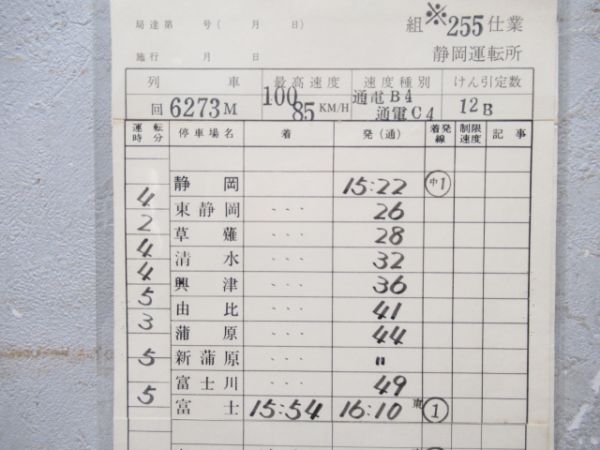 局達第　号(　月　日)　組※255仕業
施行　月　日　静岡運転所
列車　最高速度　速度種別　けん引定数
回6273M　100 85KM/H　通電B4 通電C4　12B
運転時分　停車場名　着　発(通)　着発線　制限速度　記事
静岡　15:22　中1
4
東静岡　・・・　26
2
草薙　・・・　28
4
清水　・・・　32
4
興津　・・・　36
5
由比　・・・　41
3
蒲原　・・・　44
新蒲原　・・・　〃
5
富士川　・・・　49
5
富士　15:54　16:10　東1